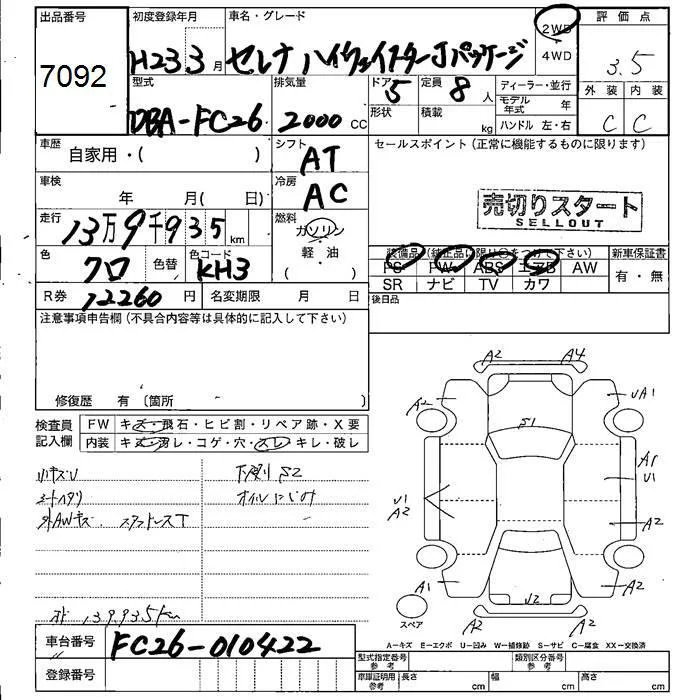 出品番号 初度登録年月 車名・グレード 2WD 4WD 評価点
7092 H23 3月 セレナ ハイウェイスターJパッケージ 3.5
型式 排気量 ドア 定員 ディーラー・並行 外装 内装
DBA-FC26 2000 CC 5 8人 モデル年式 年 C C
形状 積載 kg ハンドル 左・右
車歴 シフト セールスポイント(正常に機能するものに限ります)
自家用・( ) AT
車検 冷房
年 月( 日) AC
売切りスタート
SELLOUT
走行 燃料
13万9千935km ガソリン
軽・油
( ・ )
色 色替 色コード
クロ KH3
装備品(純正品に限り○をつけて下さい) 新車保証書
PS PW ABS エアB AW 有・無
SR ナビ TV カワ
R券 12260円 名変期限 月 日
後日品
注意事項申告欄(不具合内容等は具体的に記入して下さい)
修復歴 有〔箇所 〕
検査員記入欄 FW キズ・飛石・ヒビ割・リペア跡・X要
内装 キズ・汚レ・コゲ・穴・スレ・キレ・破レ
小キズU 下廻りS2
シートヘタリ オイルにじみ
外AWキズ スタッドレスT
139.935km
A2 A4
A2 UA1
S1
A1
U1
U1
A2
A2
A1 A2
U2
A2 A2
スペア
A-キズ E-エクボ U-凹み W-補修跡 S-サビ C-腐食 XX-交換済
車台番号 FC26-010422
型式指定番号 参考 類別区分番号 参考
登録番号
車庫証明用 参考 長さ cm 幅 cm 高さ cm